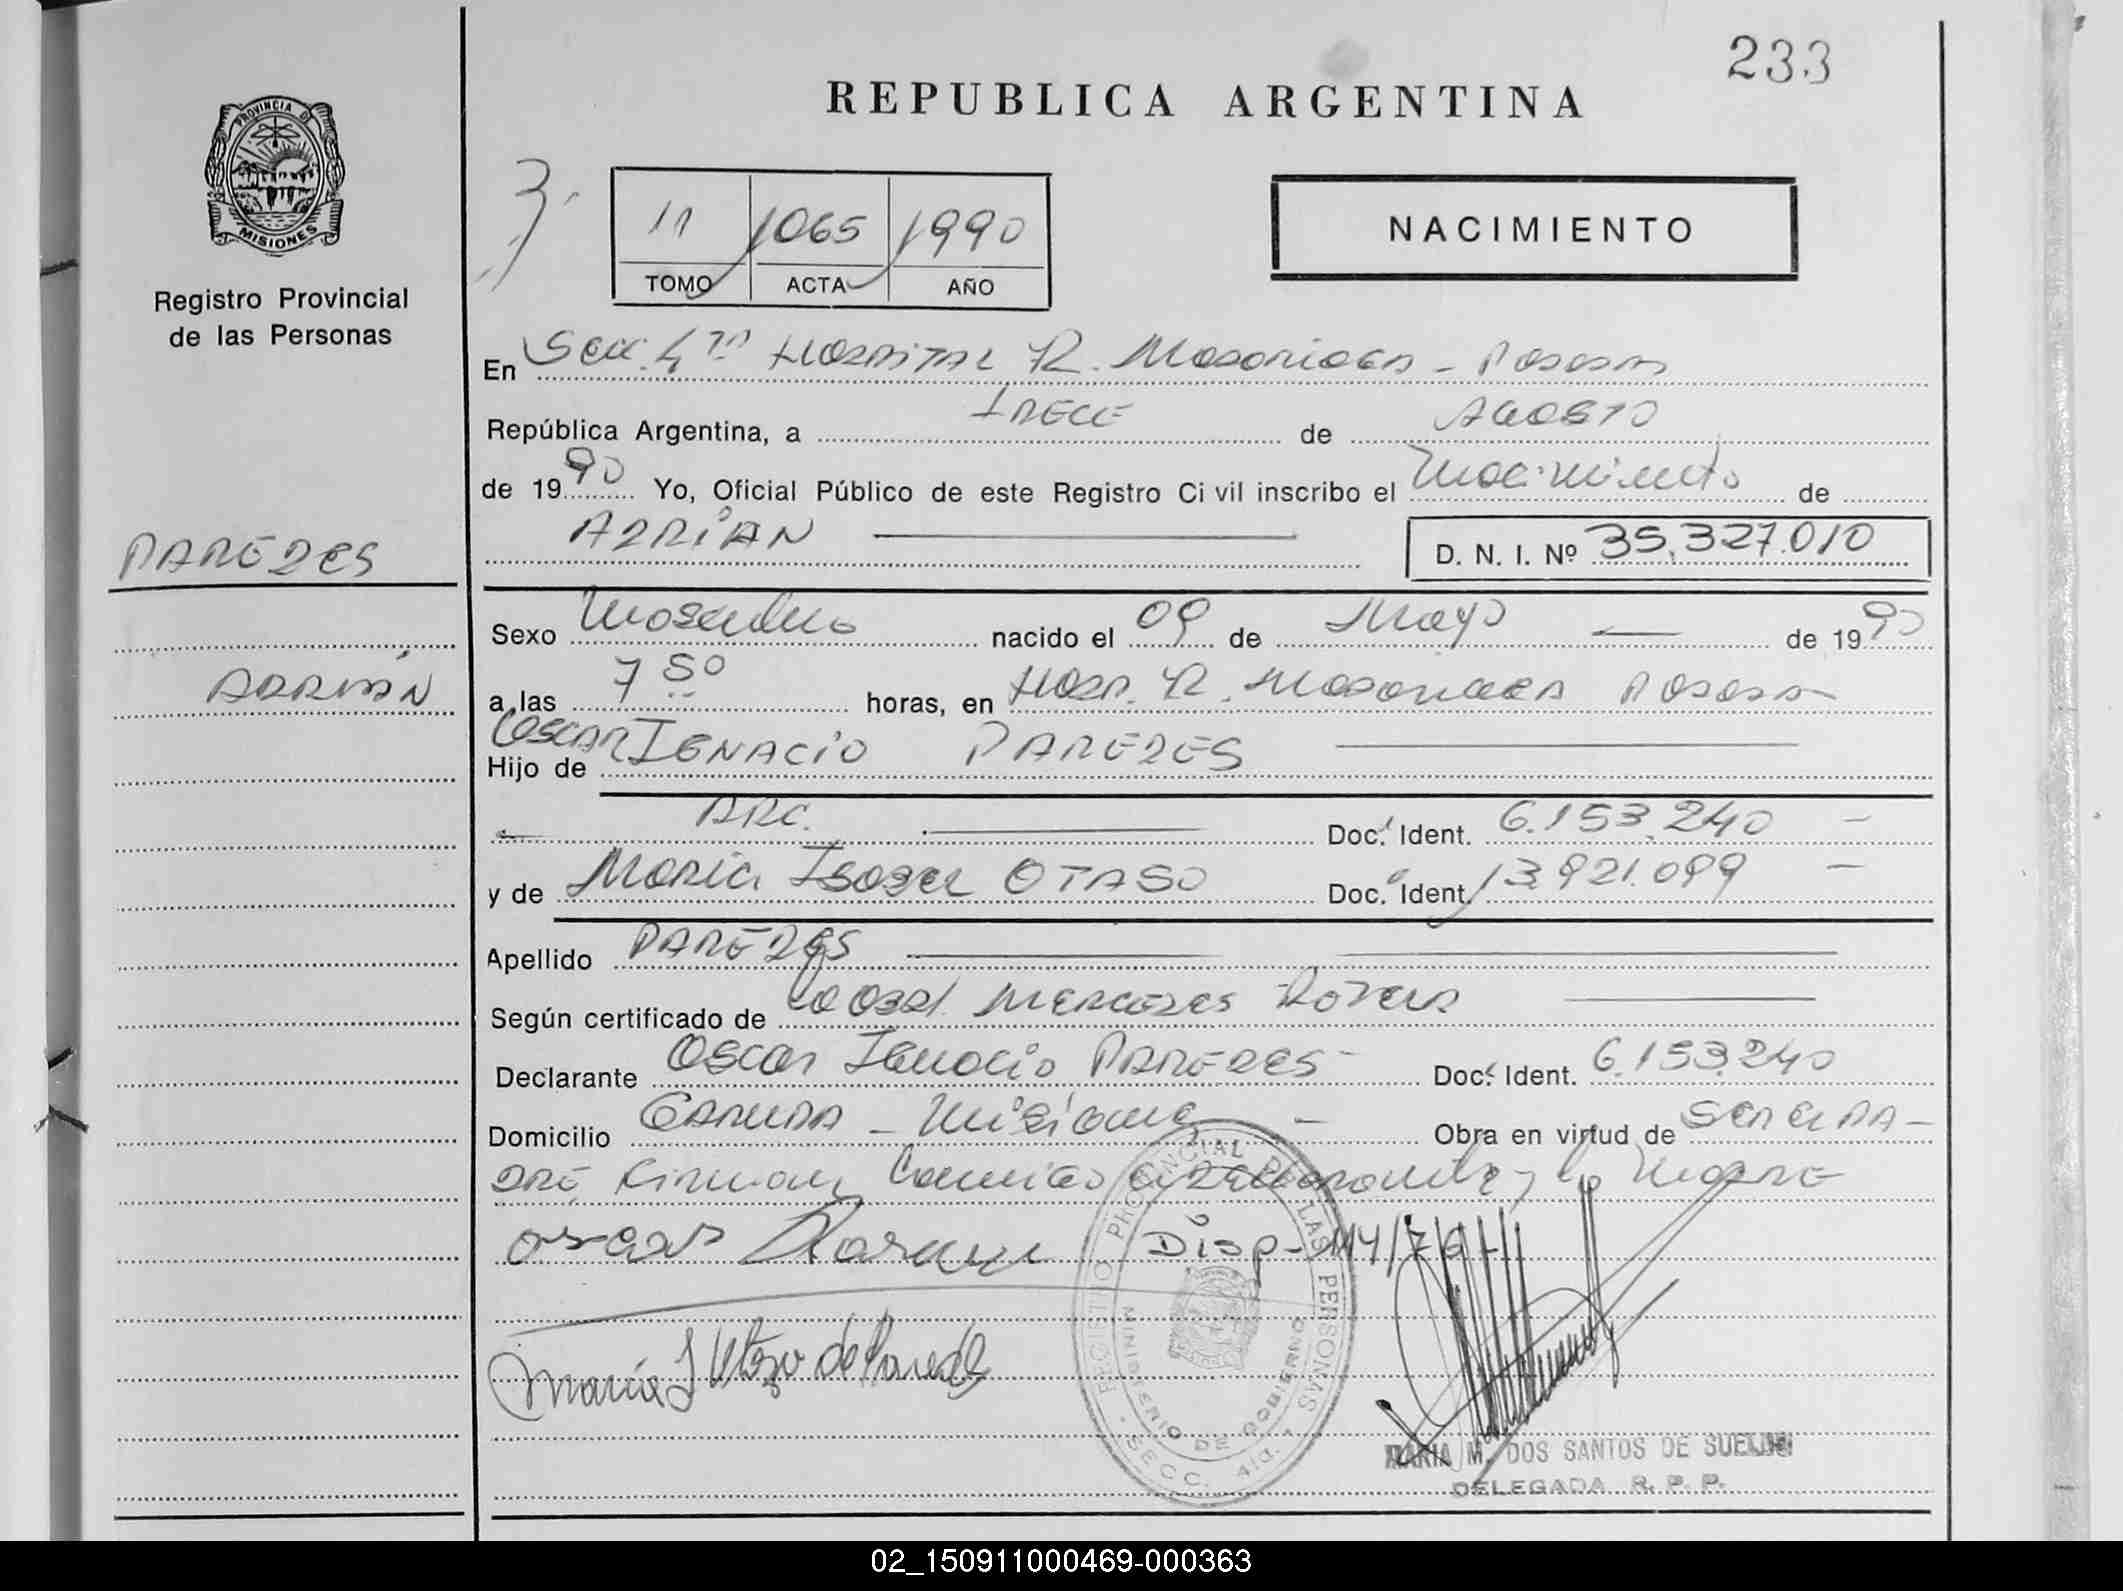 233
REPUBLICA ARGENTINA
PROVINCIA DE
MISIONES
Registro Provincial
de las Personas
11 1065 1990
TOMO ACTA AÑO
NACIMIENTO
En Secc. 4ta Hospital R. Madariaga - Posadas
República Argentina, a TRECE de AGOSTO
de 1990 Yo, Oficial Público de este Registro Civil inscribo el Nacimiento de
ADRIÁN
D. N. I. Nº 35.327.010
PAREDES
ADRIÁN
Sexo Masculino nacido el 09 de Mayo de 1990
a las 7 50 horas, en Hosp. R. Madariaga Posadas
Hijo de OSCAR IGNACIO PAREDES
ARG. Doc. Ident. 6.153.240
y de Maria Isabel OTASO Doc. Ident. 13.921.099
Apellido PAREDES
Según certificado de Mercedes
Declarante Oscar Ignacio PAREDES Doc. Ident. 6.153.240
Domicilio GARUPA - Misiones Obra en virtud de SER EL PA-
DRE, Firman Conmigo el Declarante y la MADRE
oscar Disp-
María I Otazo de Paredes
REGISTRO PROVINCIAL DE LAS PERSONAS
MINISTERIO DE GOBIERNO
SECC. 4ta.
MARIA M. DOS SANTOS DE
DELEGADA R. P. P.
02_150911000469-000363